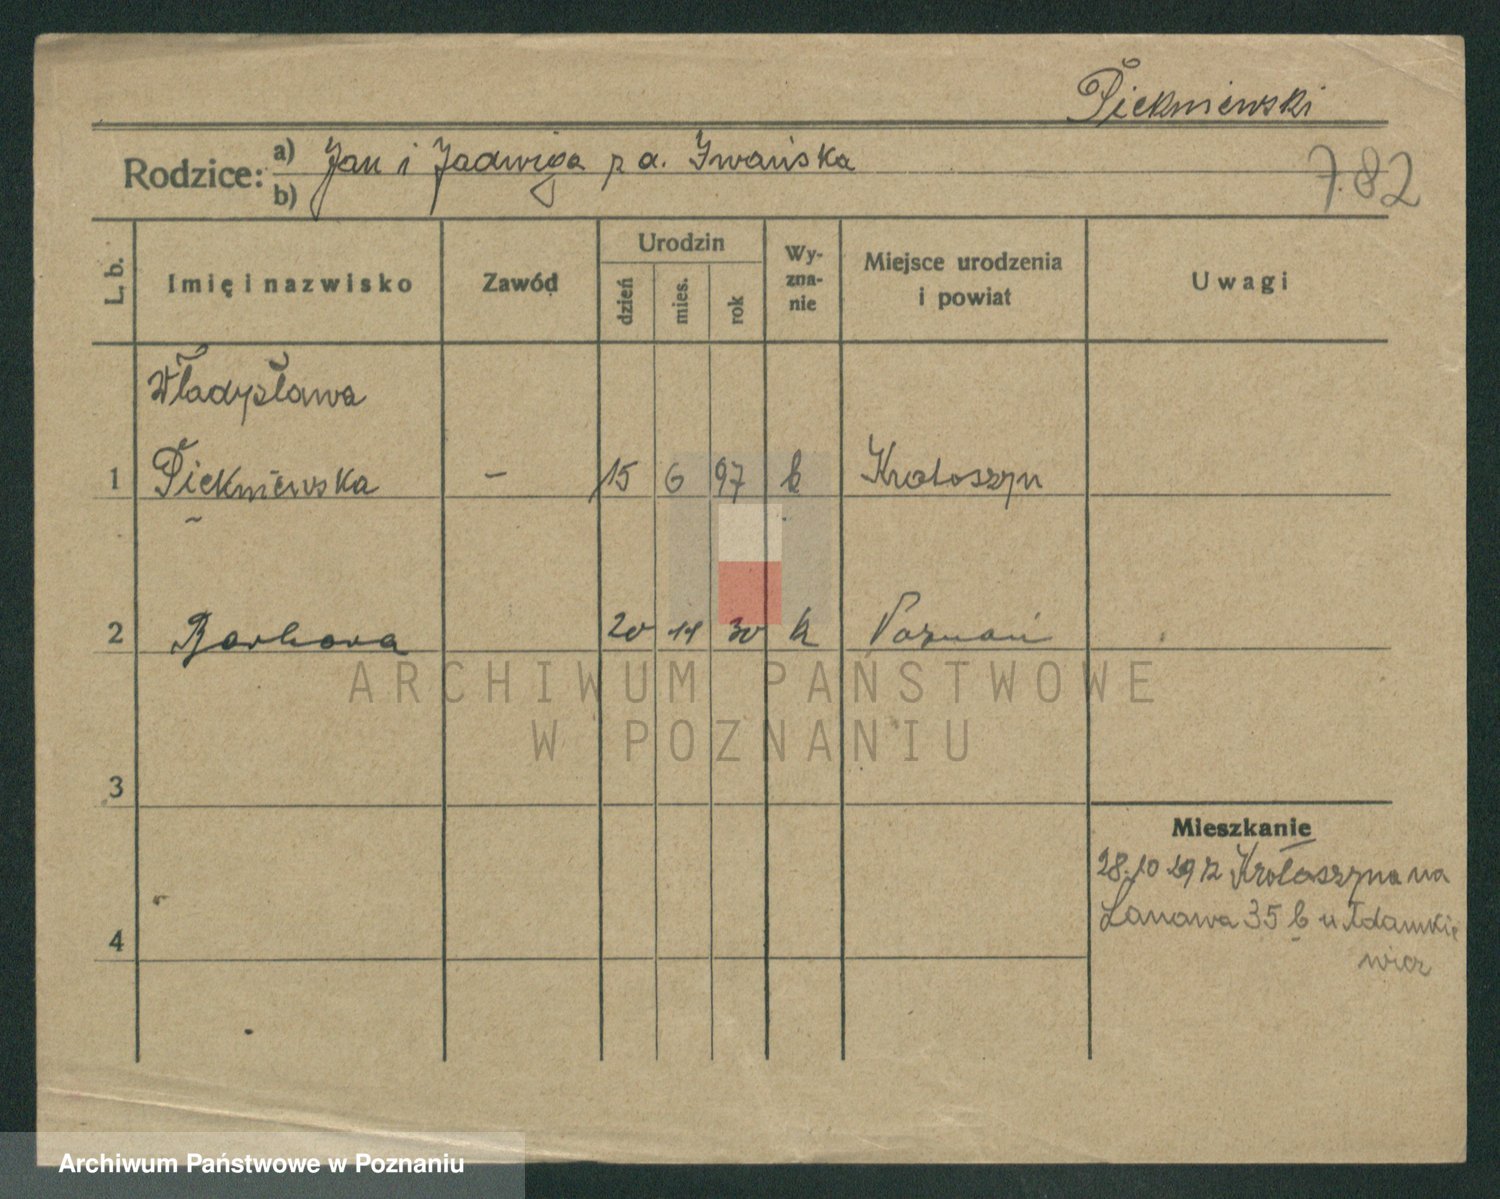 Piekniewski
Rodzice: a) Jan i Jadwiga z d. Iwańska
b)
782
L. b.
Imię i nazwisko
Zawód
Urodzin
dzień
mies.
rok
Wy-
zna-
nie
Miejsce urodzenia
i powiat
Uwagi
Władysława
1 Piekniewska – 15 6 97 k Krotoszyn
2 Barbara 20 11 30 k Poznań
3
4
Mieszkanie
28.10 29 z Krotoszyna na
Łanowa 35 b u Adamkie
wicz
ARCHIWUM PAŃSTWOWE
W POZNANIU
Archiwum Państwowe w Poznaniu